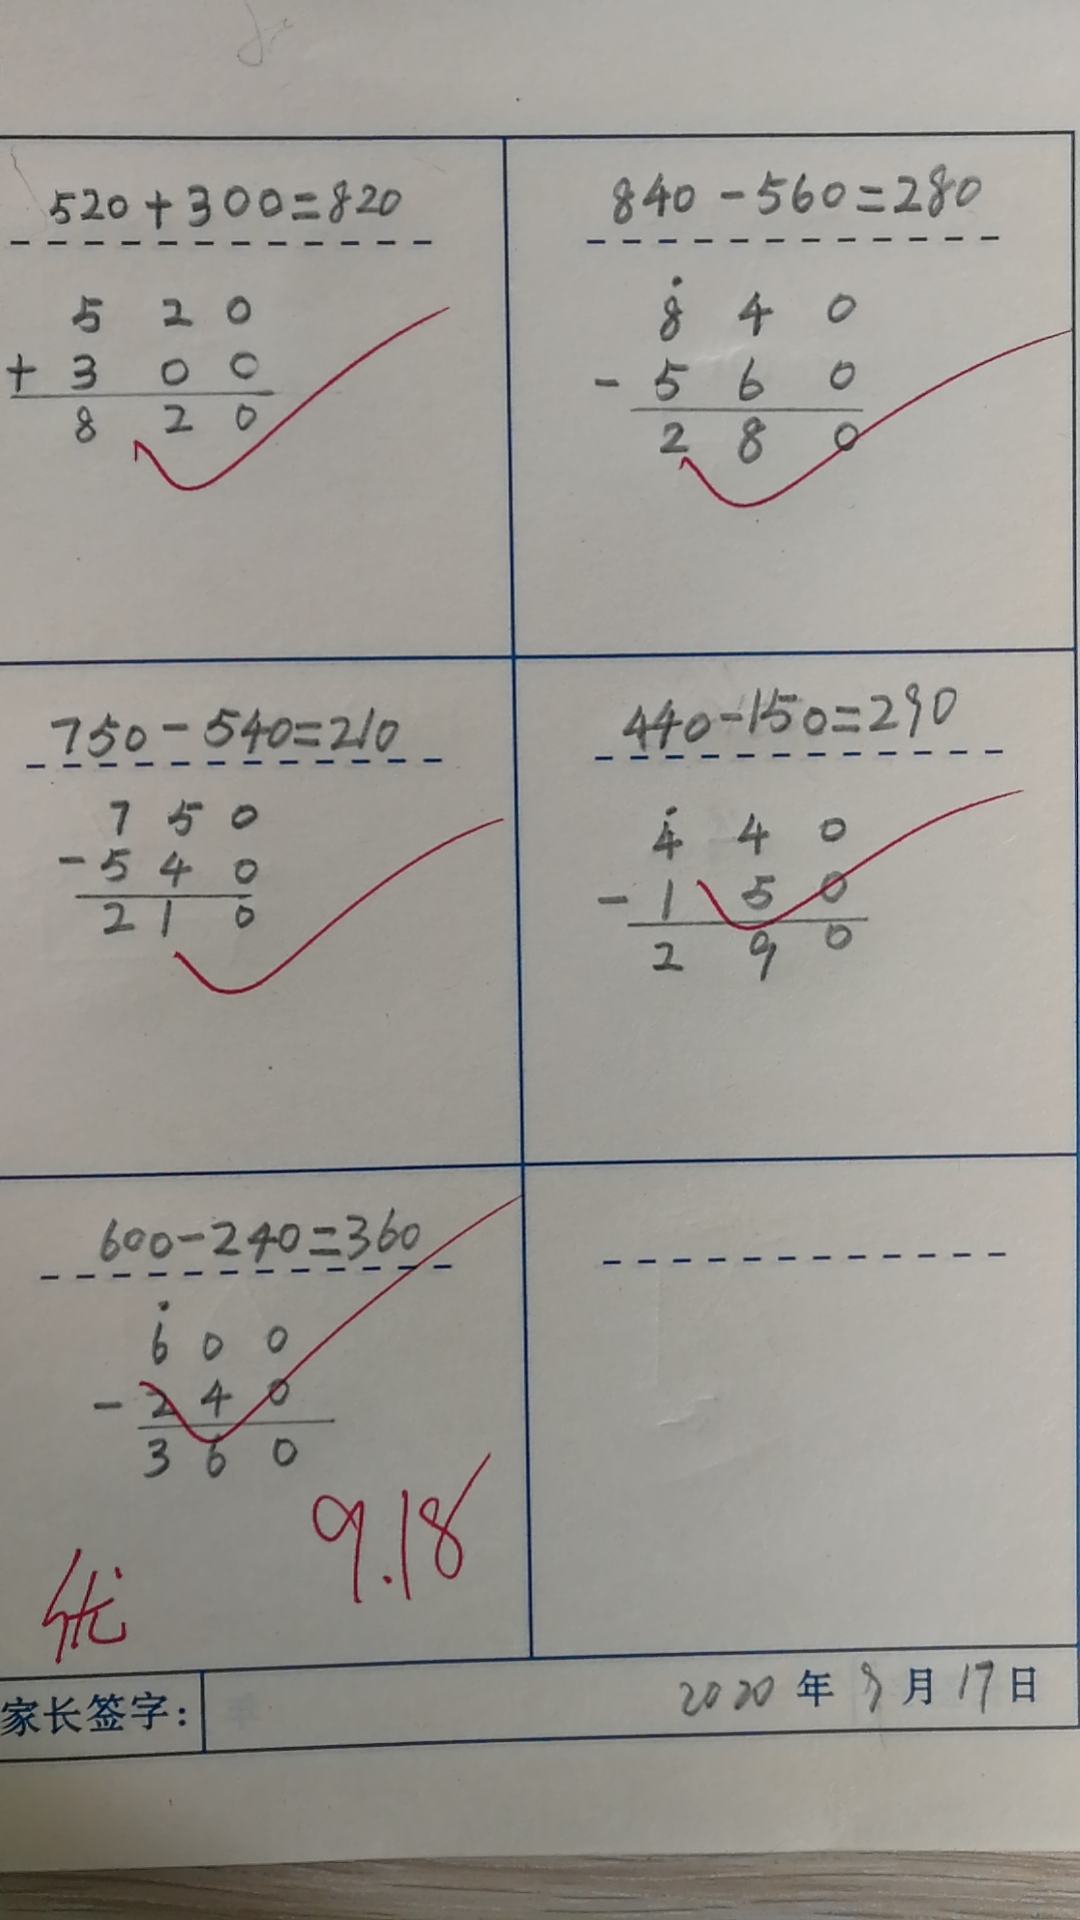 520+300=820
5 2 0
+ 3 0 0
8 2 0
840-560=280
8 4 0
- 5 6 0
2 8 0
750-540=210
7 5 0
- 5 4 0
2 1 0
440-150=290
4 4 0
- 1 5 0
2 9 0
600-240=360
6 0 0
- 2 4 0
3 6 0
9.18
优
家长签字:
2020年9月17日